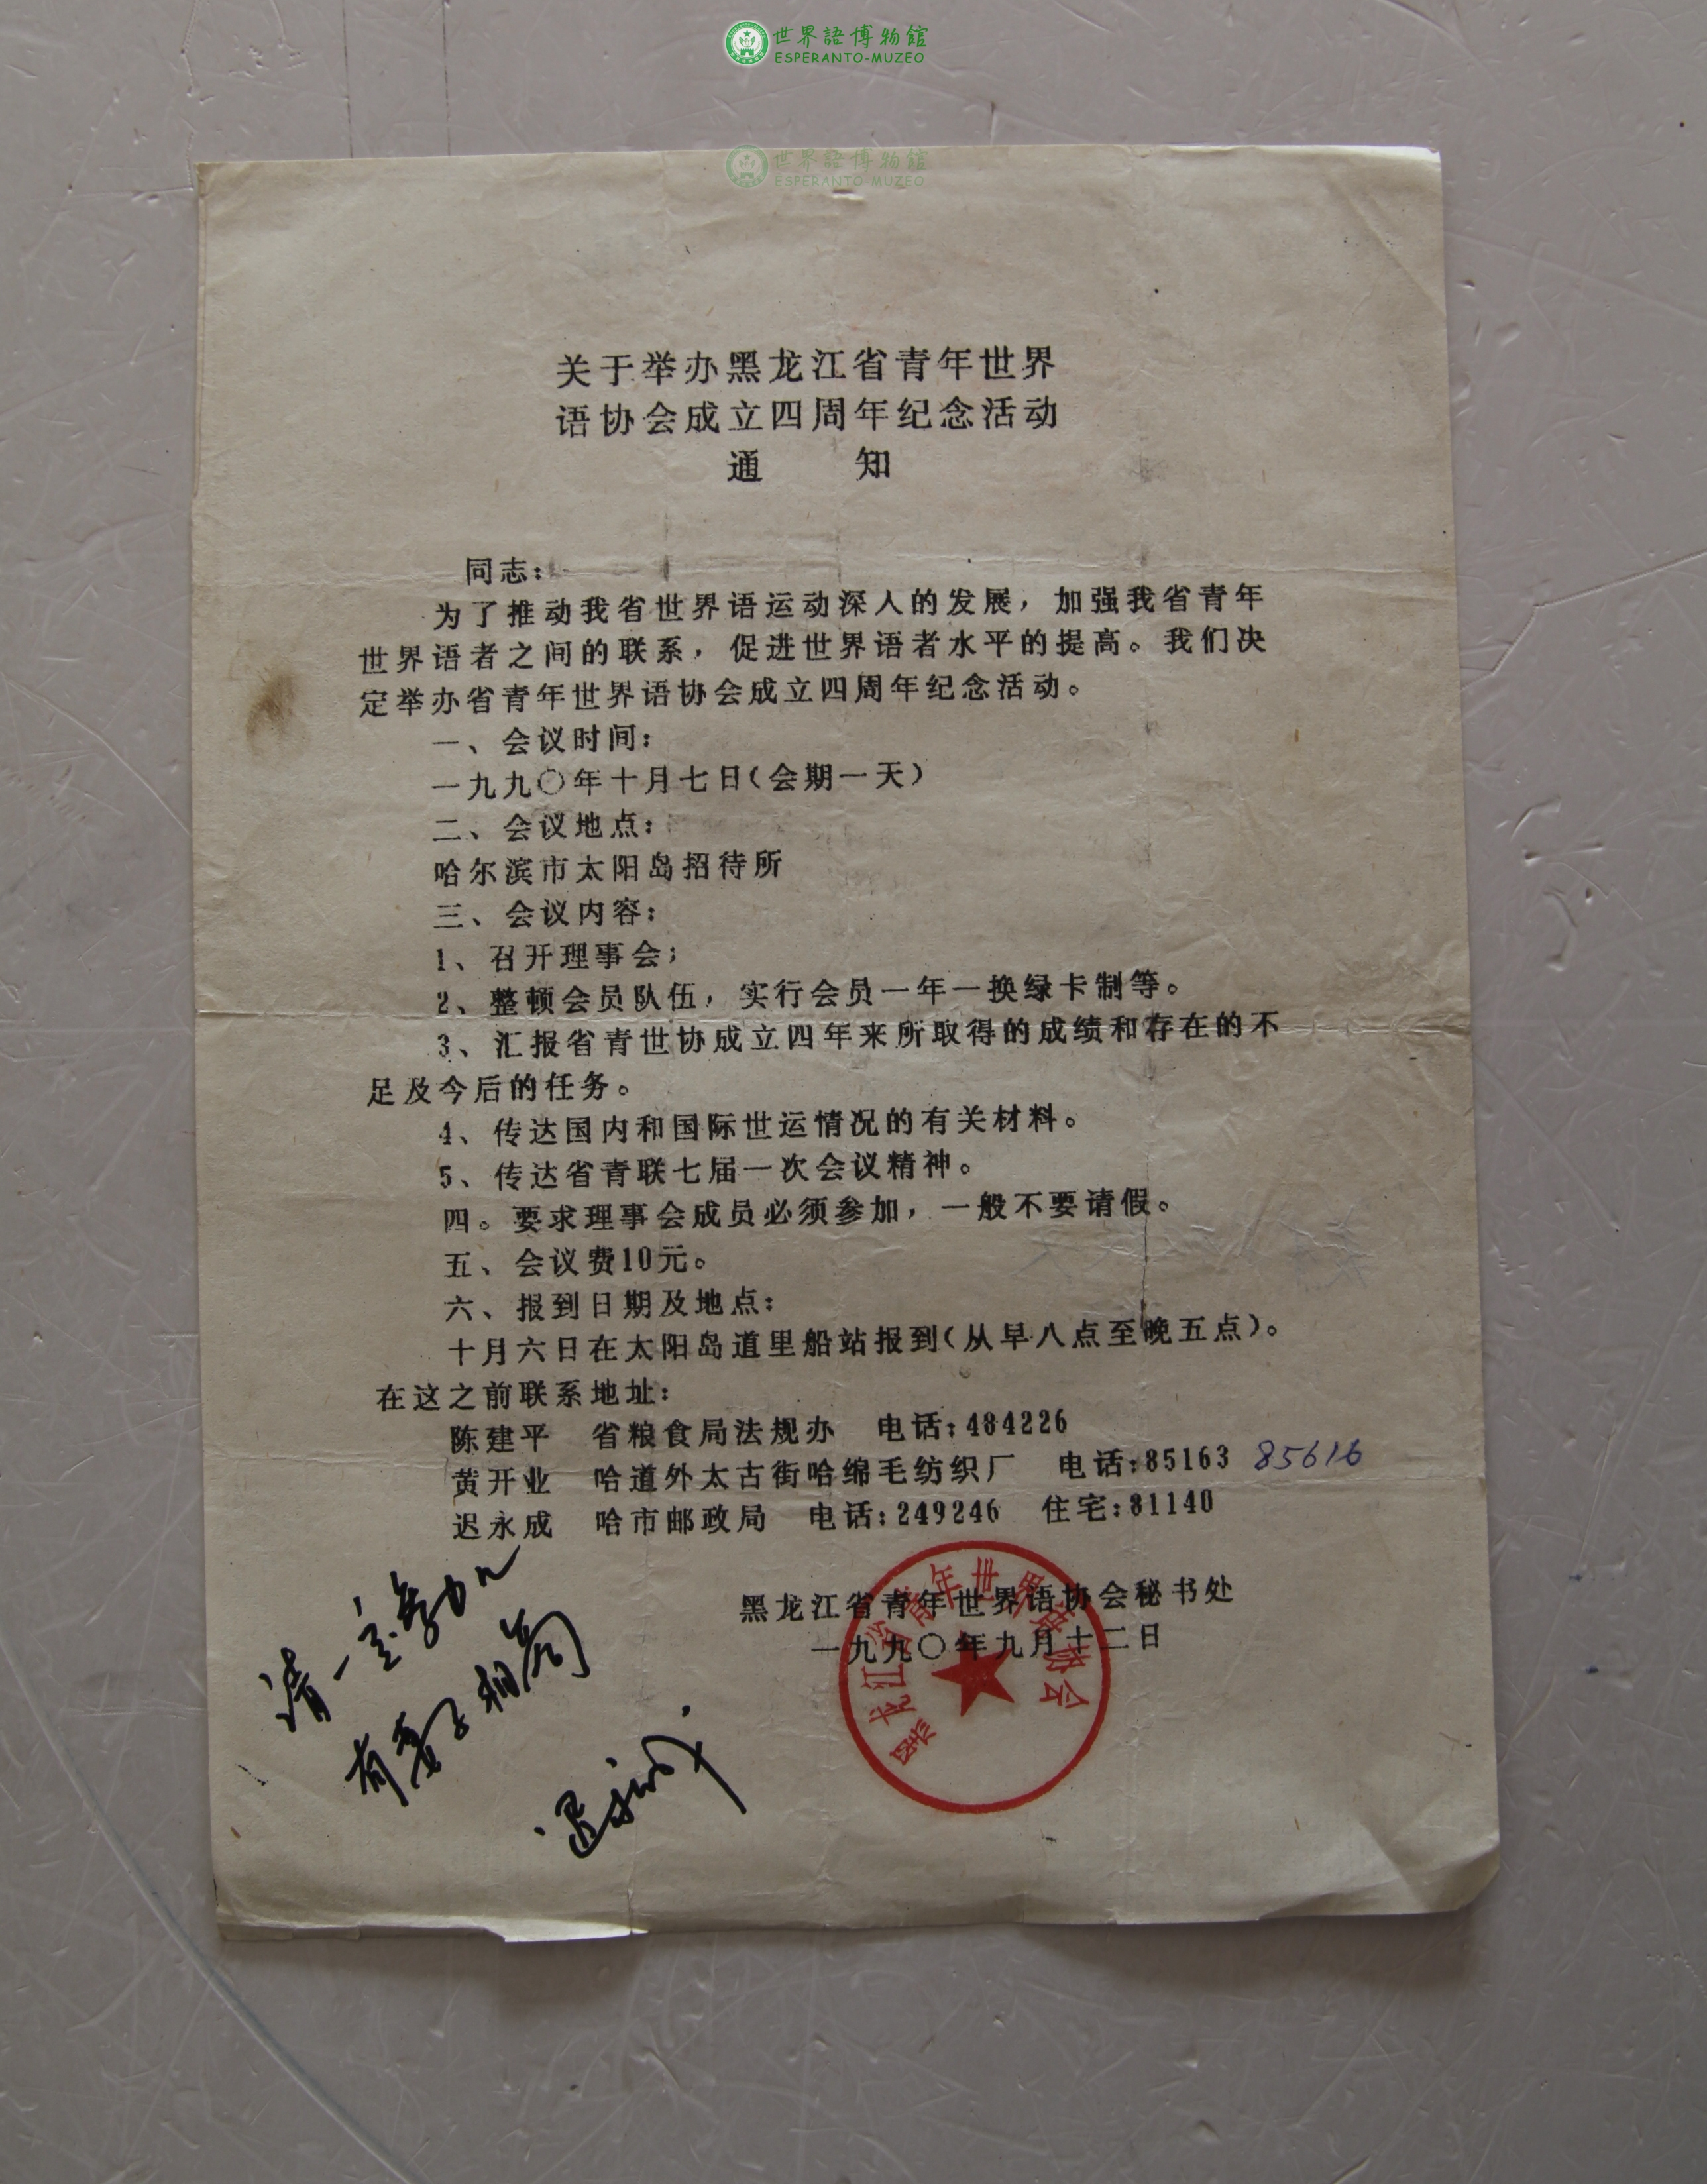 世界語博物館
ESPERANTO-MUZEO
世界語博物館
ESPERANTO-MUZEO
关于举办黑龙江省青年世界
语协会成立四周年纪念活动
通 知
同志：
为了推动我省世界语运动深人的发展，加强我省青年
世界语者之间的联系，促进世界语者水平的提高。我们决
定举办省青年世界语协会成立四周年纪念活动。
一、会议时间：
一九九〇年十月七日（会期一天）
二、会议地点：
哈尔滨市太阳岛招待所
三、会议内容：
1、召开理事会；
2、整顿会员队伍，实行会员一年一换绿卡制等。
3、汇报省青世协成立四年来所取得的成绩和存在的不
足及今后的任务。
4、传达国内和国际世运情况的有关材料。
5、传达省青联七届一次会议精神。
四。要求理事会成员必须参加，一般不要请假。
五、会议费10元。
六、报到日期及地点：
十月六日在太阳岛道里船站报到（从早八点至晚五点）。
在这之前联系地址：
陈建平 省粮食局法规办 电话：484226
黄开业 哈道外太古街哈绵毛纺织厂 电话：85163 85616
迟永成 哈市邮政局 电话：249246 住宅：81140
黑龙江省青年世界语协会秘书处
一九九〇年九月十二日
黑龙江省青年世界语协会
请一定参加
有要事相商
迟永成